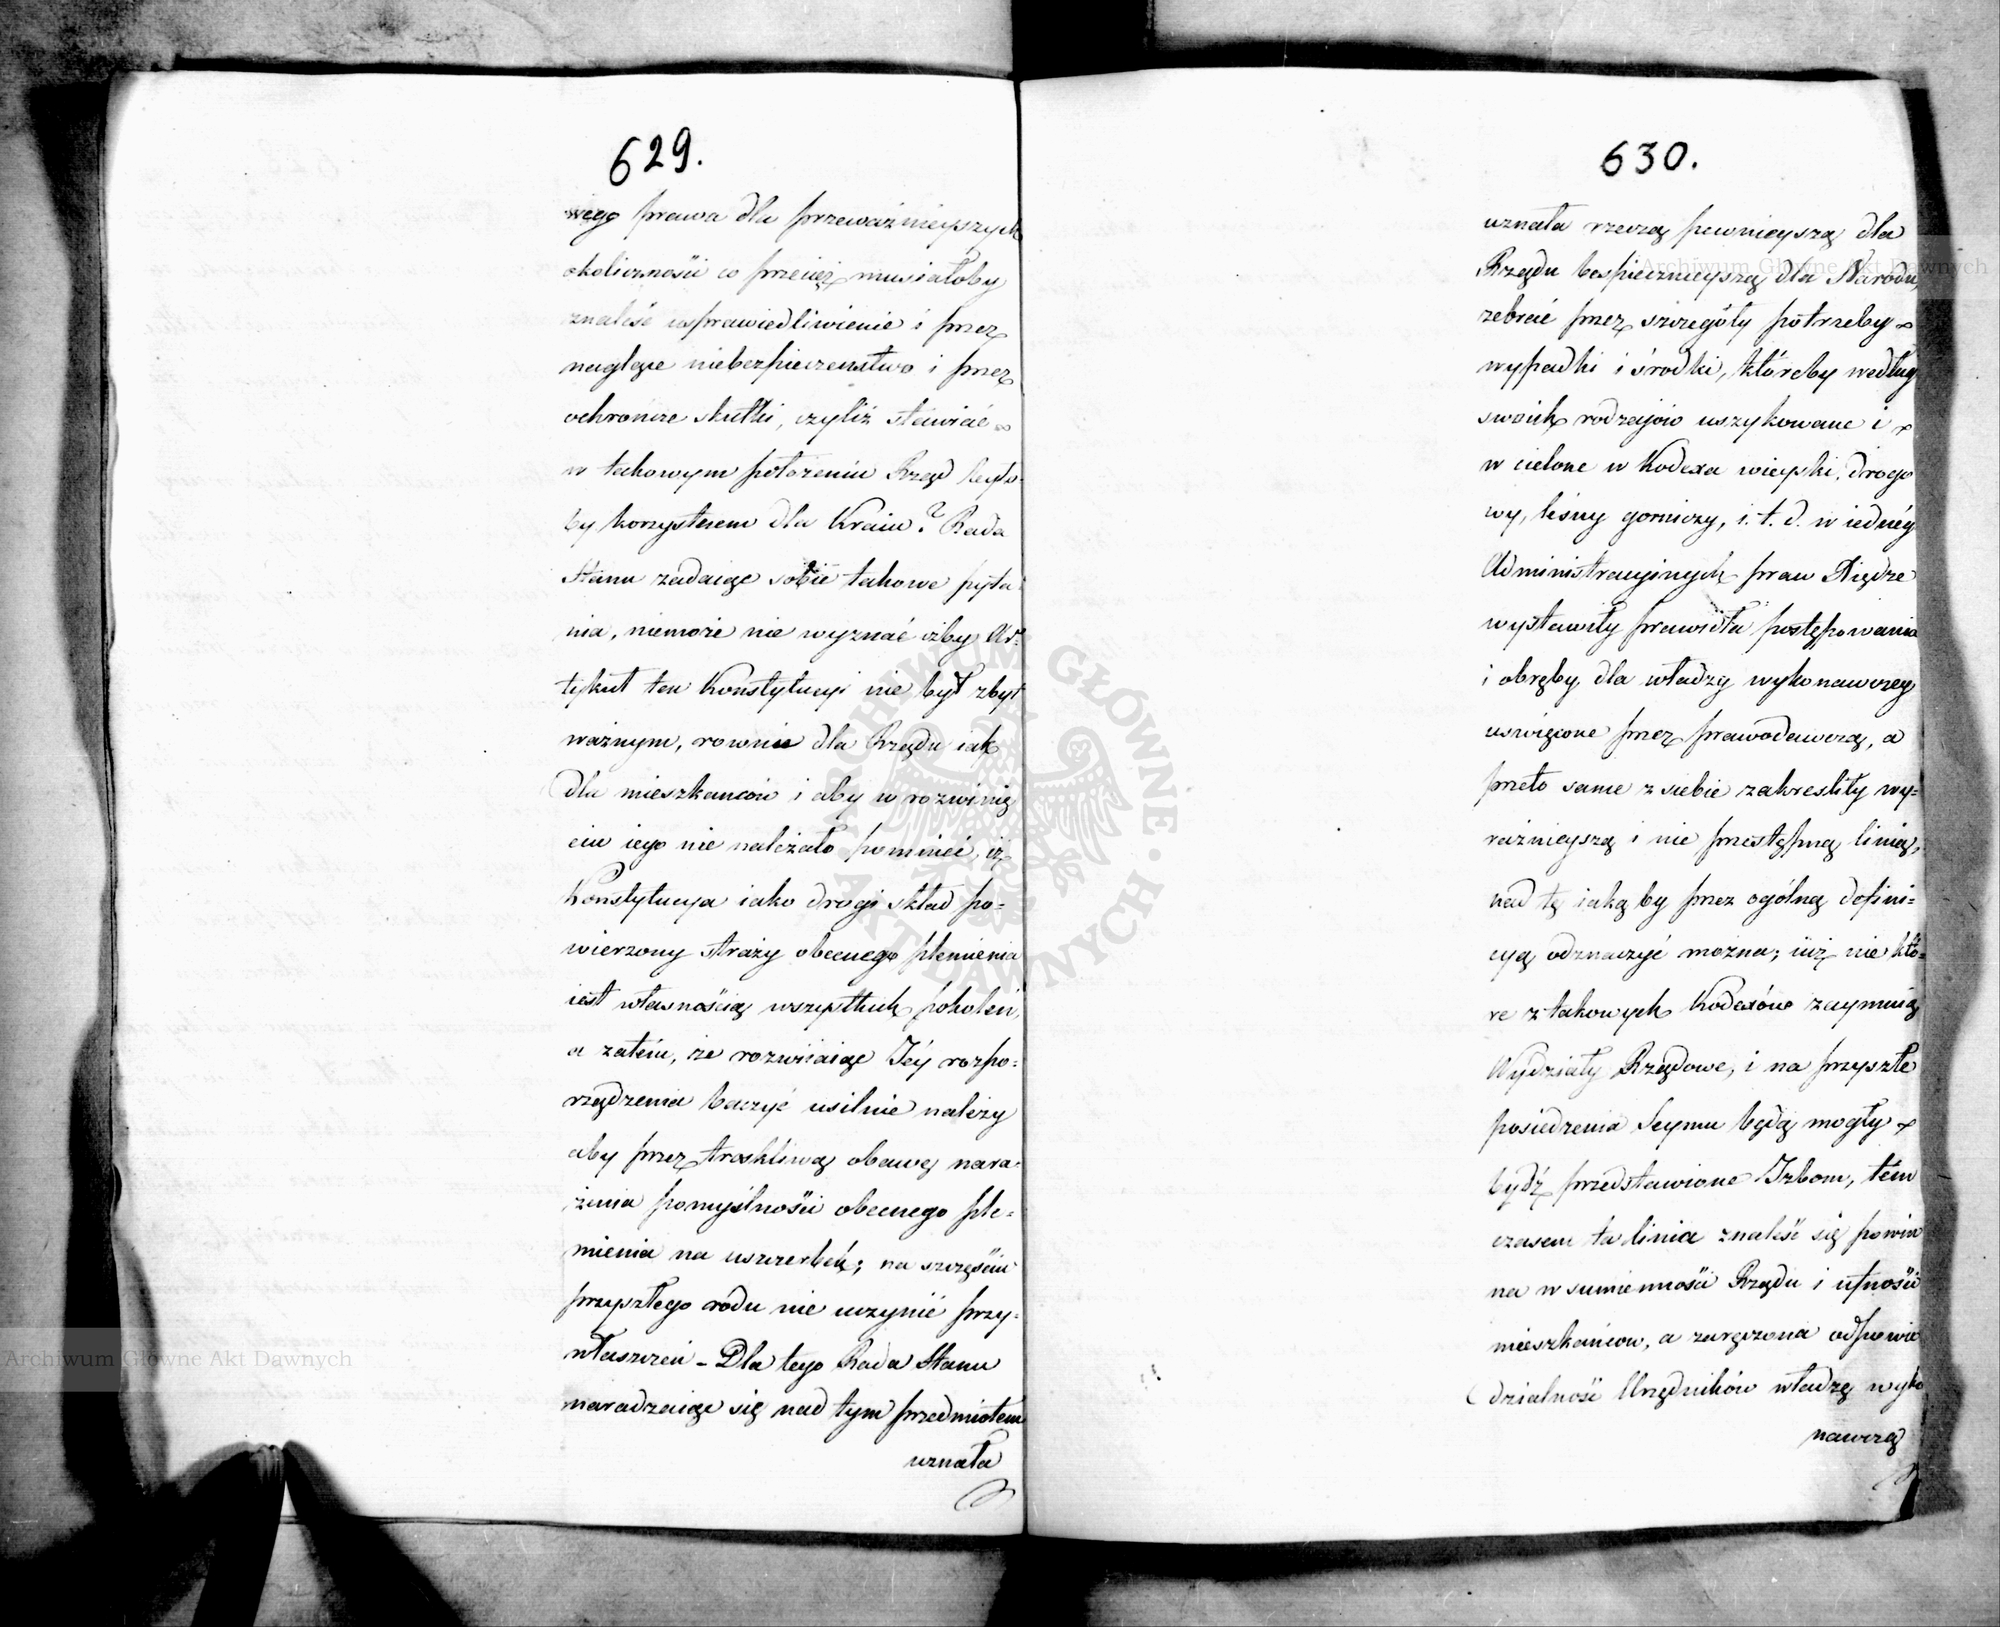 629.
wego prawa dla przeważnieyszych
okoliczności co przecięż musiałoby
znaleść usprawiedliwienie i przez
naglące niebezpieczenstwo i przez
ochroncze skutki, czyliż stawiać
w takowym położeniu Rząd było-
by korzystnem dla Kraiu? Rada
Stanu zadaiąc sobie takowe pyta
nia, niemoże nie wyznać iżby Ar-
tykuł ten Konstytucyi nie był zbyt
ważnym, rownie dla Rządu iak
dla mieszkancow i aby w rozwinię
ciu iego nie należało pominąć, iż
Konstytucya iako drogi skład po-
wierzony straży obecnego plemienia
iest własnością wszystkich pokoleń,
a zatém, że rozwiiaiąc Jéy rozpo-
rządzenia baczyć usilnie należy
aby przez troskliwą obawę nara-
żenia pomyślności obecnego ple-
mienia na uszczerbek; na szczęściu
przyszłego rodu nie uczynić przy-
właszczeń – Dla tego Rada Stanu
naradzaiąc się nad tym przedmiotem
uznała
630.
uznała rzeczą pewnieyszą dla
Rządu bespiecznieyszą dla Narodu,
zebrać przez szczegóły potrzeby
wypadki i środki, któreby według
swoich rodzajów uszykowane i
w cielone w Kodexa wieyski, drogo
wy, leśny gorniczy, i. t. d. w iednéy
Administracyinych praw Xiędze
wystawiły prawidła postępowania
i obręby dla władzy wykonawczey
uswięcone przez prawodawczą, a
przeto same z siebie zakreśliły wy-
raźnieyszą i nie przestępną linią,
nad tę iaką by przez ogólną defini-
cyą odznaczyć można; iuż nie któ-
re z takowych Kodexów zaymuią
Wydziały Rządowe, i na przyszłe
posiedzenia Seymu będą mogły
bydź przedstawione Izbom, tém
czasem ta linia znaleść się powin
na w sumienności Rządu i ufności
mieszkańcow, a zaręczona odpowie
dzialność Urzędników władzę wyko
nawczą
Archiwum Główne Akt Dawnych
Archiwum Główne Akt Dawnych
ARCHIWUM GŁÓWNE · AKT DAWNYCH ·